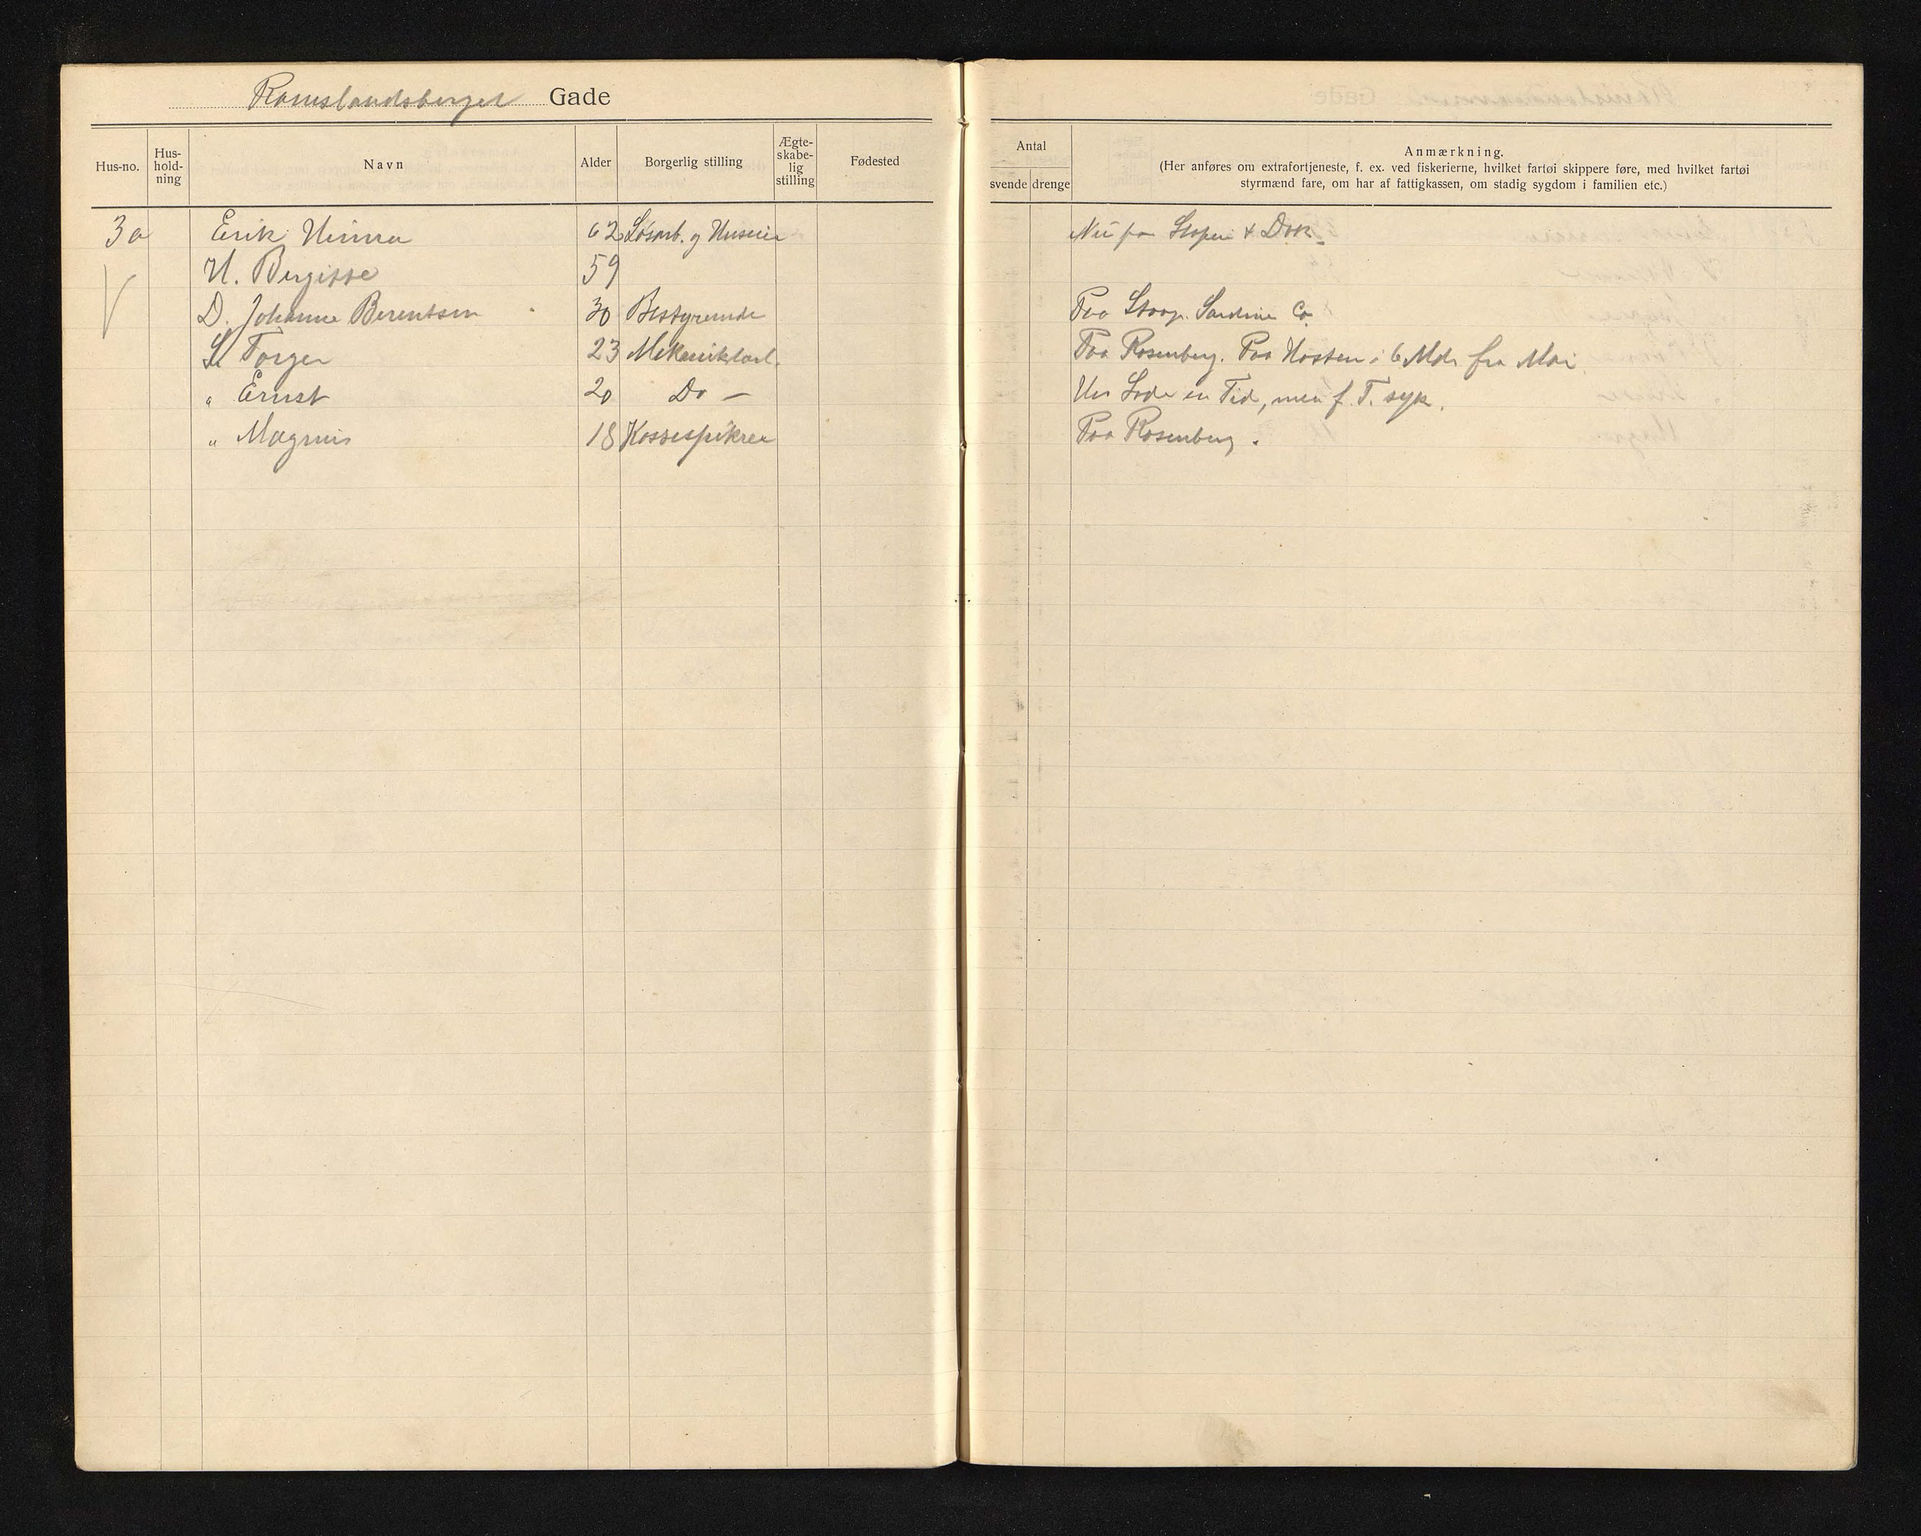 Ramslandsberget Gade
Hus-no. Hus-hold-ning Navn Alder Borgerlig stilling Ægte-skabe-lig stilling Fødested
Antal
svende drenge
Anmærkning.
(Her anføres om extrafortjeneste, f. ex. ved fiskerierne, hvilket fartøi skippere føre, med hvilket fartøi
styrmænd fare, om har af fattigkassen, om stadig sygdom i familien etc.)
3a Erik Hinna 62 Løsarb. og Huseier Nu paa Støperi & Dok
H. Bergitte 59
D. Johanne Berentsen 30 Bestyrende Paa Stavgr. Sardine Co
S. Torger 23 Mekanikkarb. Paa Rosenberg. Paa Hosten i 6 Mdr fra Mai
" Ernst 20 Do — en Tid, men f. T. syk.
" Magnus 18 Kassespikrer Paa Rosenberg.